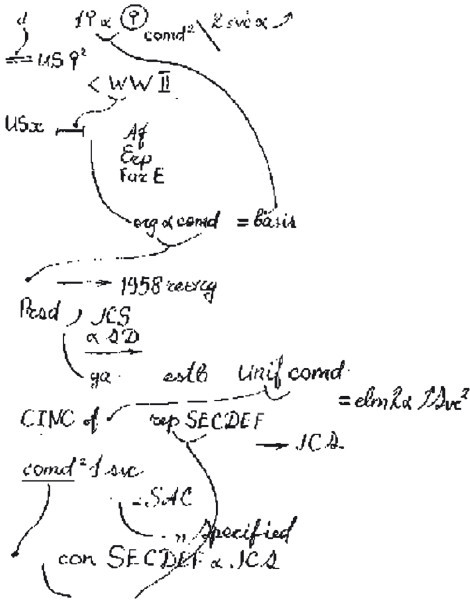 d 1♀ α ♀ comd² \ 2 svc α ↗
US ♀²
< WW II
USx
Af
Erp
Far E
org α comd = basis
→ 1958 reorg
Prsd , JCS
α SD
ga estb Unif comd
= elm 2α ↑ svc²
CINC of rep SECDEF
→ JCS
comd² 1 svc
- SAC
- " Specified
con SECDEF α JCS